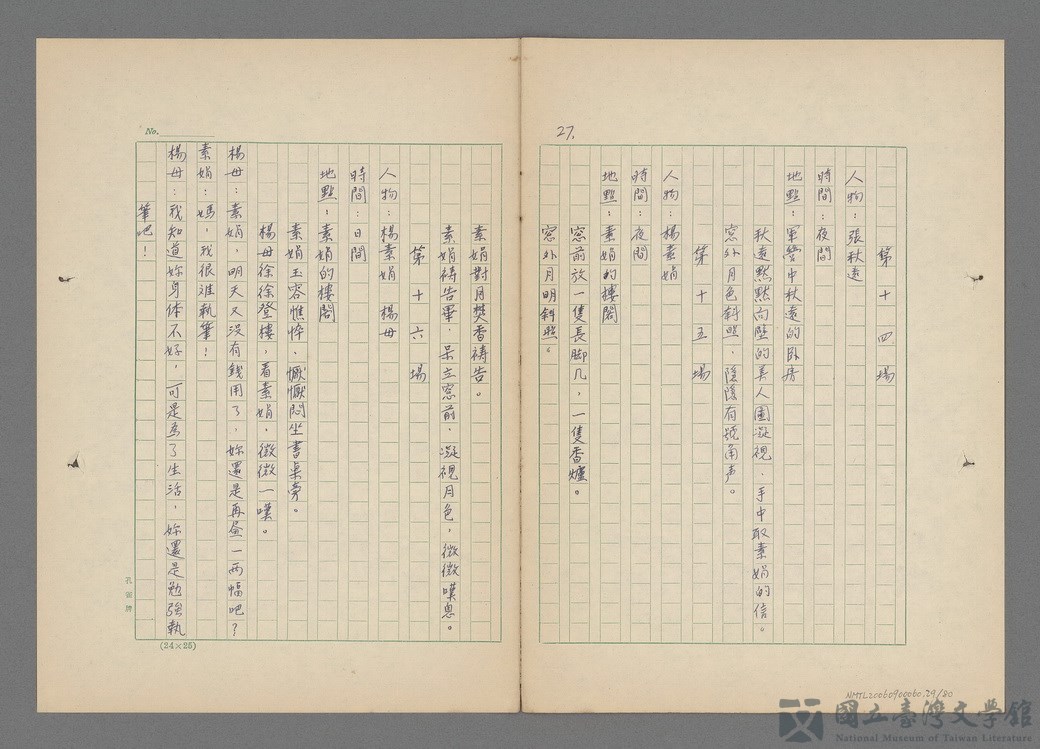 27.
第十四場
人物：張秋遠
時間：夜間
地點：軍營中秋遠的卧房
秋遠默默向壁的美人圖凝視，手中取素娟的信。
窓外月色斜照，隐隐有號角声。
第十五場
人物：楊素娟
時間：夜間
地點：素娟的樓閣
窓前放一隻長脚几，一隻香爐。
窓外月明斜照。
素娟對月焚香禱告。
素娟禱告畢，呆立窓前，凝視月色，微微嘆息。
第十六場
人物：楊素娟 楊母
時間：日間
地點：素娟的樓閣
素娟玉容憔悴，懨懨悶坐書桌旁。
楊母徐徐登樓，看素娟，微微一嘆。
楊母：素娟，明天又没有錢用了，妳還是再畫一両幅吧？
素娟：媽，我很难執筆！
楊母：我知道妳身体不好，可是為了生活，妳還是勉強執
筆吧！
No.
孔雀牌
(24×25)
NMTL20060900060.29/80
國立臺灣文學館
National Museum of Taiwan Literature